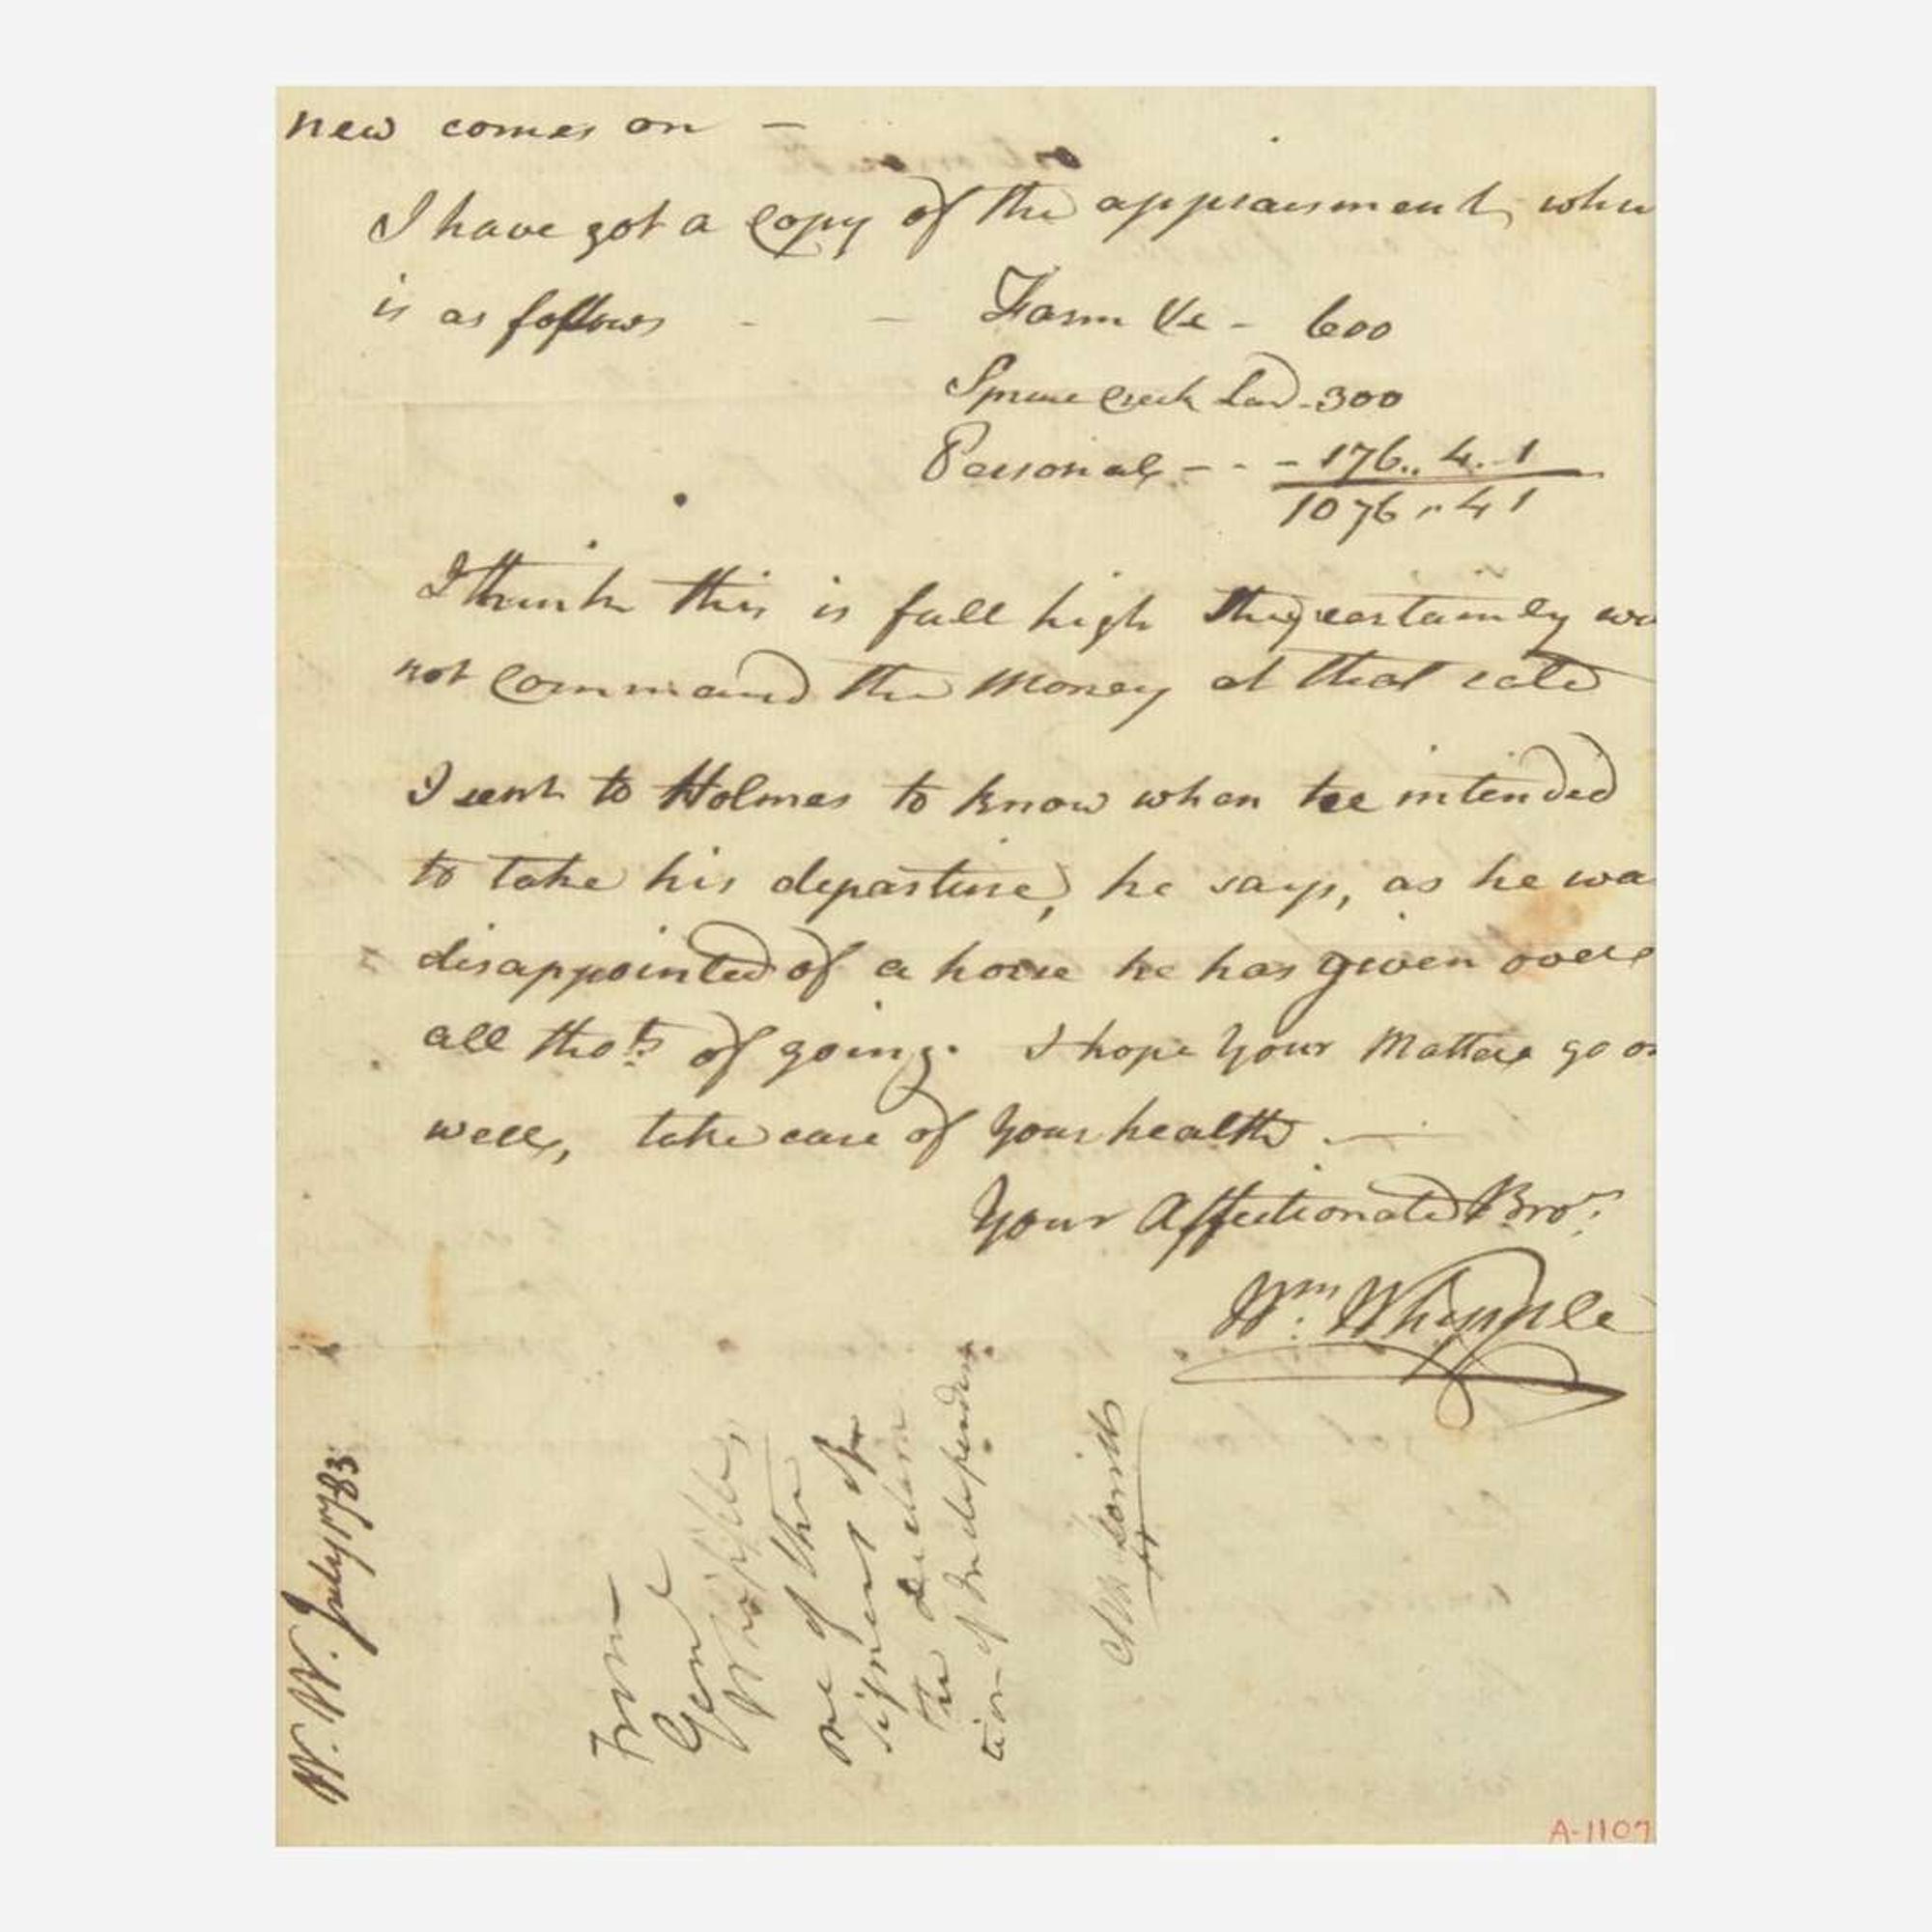 new comes on —
I have got a Copy of the appraisment, whic
is as follows - - Farm &c - 600
Spruce Creek Land - 300
Personal - - - 176.. 4.. 1
1076 " 4 1
I think this is full high they certainly wo
not Command the Money at that rate
I sent to Holmes to know when he intended
to take his departure, he says, as he wa
disappointed of a horse he has given over
all tho.ts of going. I hope Your Matters go on
well, take care of Your health. —
Your Affectionate Bro.r
Wm. Whipple
From
Genl
Whipple,
one of the
signers of
the Declara
tion of Independence
W. W. July 1783
A-1107